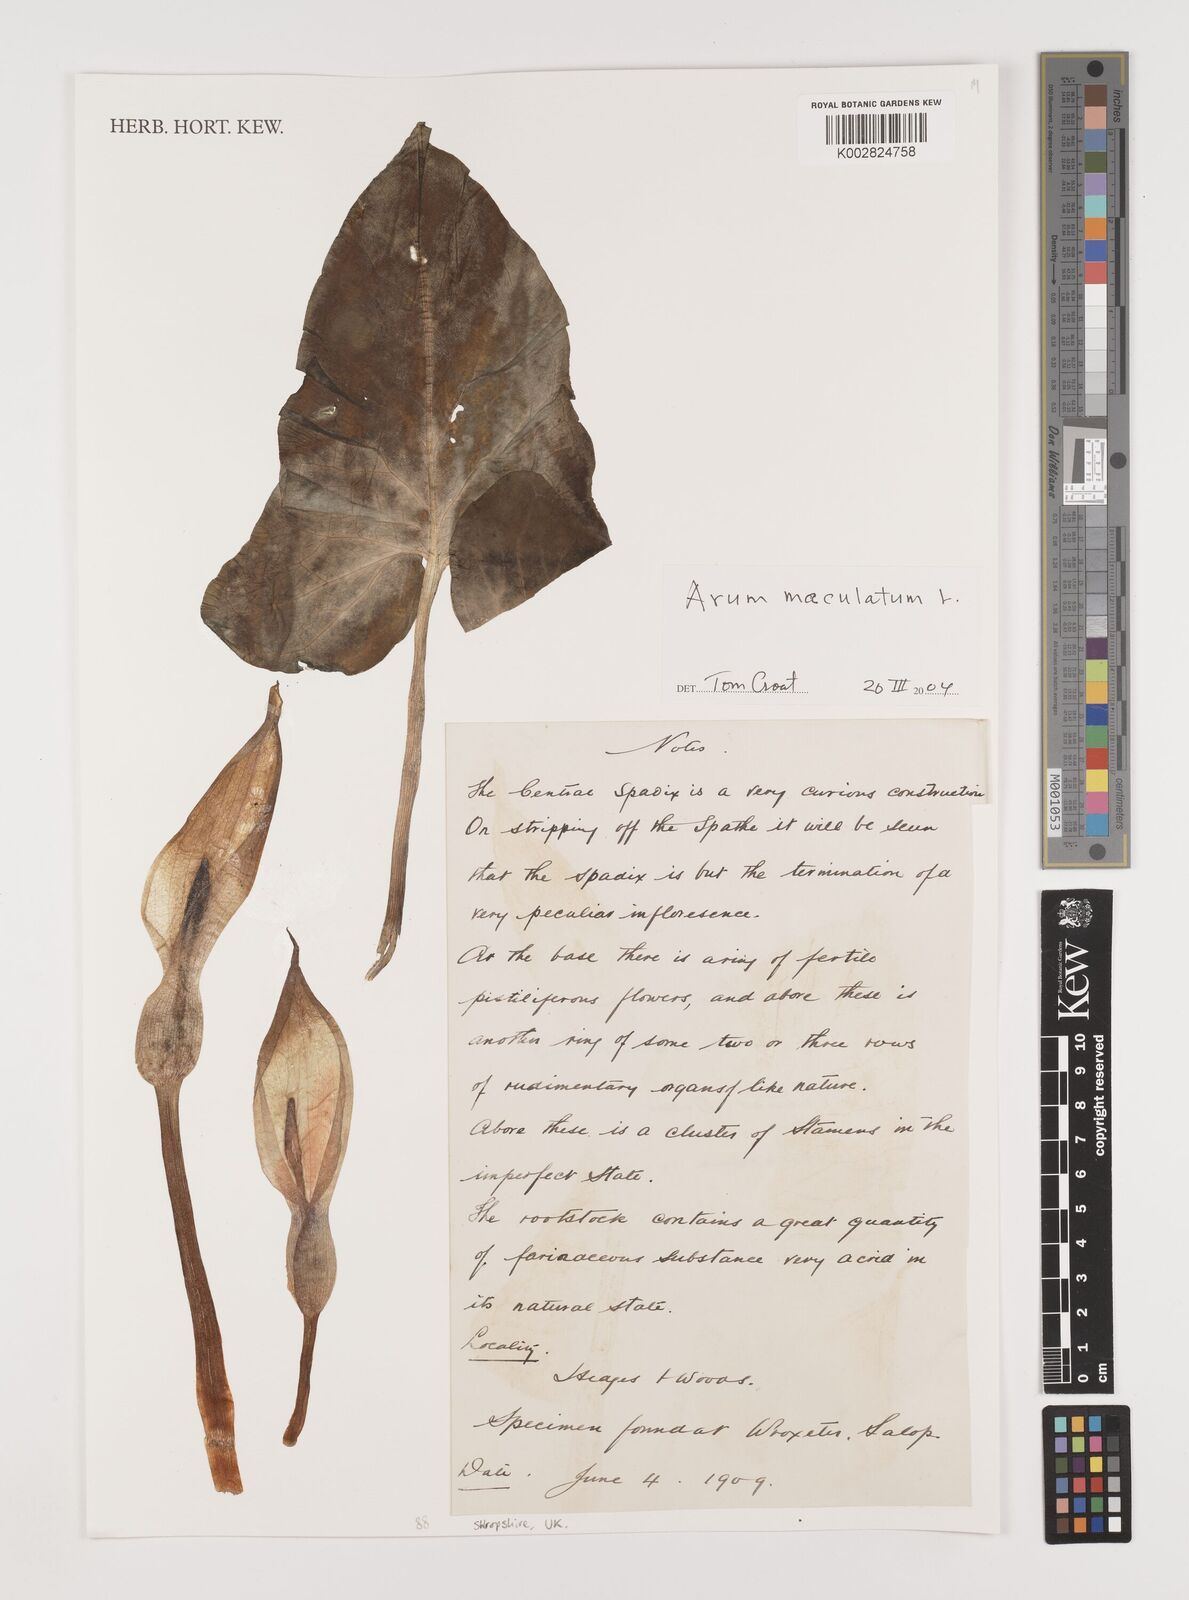 HERB. HORT. KEW.
ROYAL BOTANIC GARDENS KEW
K002824758
Arum maculatum L.
DET. Tom Croat 20 III 2004
Notes.
The Central Spadix is a very curious construction
On stripping off the Spathe it will be seen
that the spadix is but the termination of a
very peculiar infloresence.
At the base there is a ring of fertile
pistiliferous flowers, and above these is
another ring of some two or three rows
of rudimentary organs of like nature.
Above these is a cluster of Stamens in the
imperfect State.
The rootstock contains a great quantity
of farinaceous substance very acrid in
its natural state.
Locality.
Hedges & Woods.
Specimen found at Wroxeter. Salop
Date. June 4. 1909.
88
Shropshire, UK.
inches
Density
Don Williams
M001053
Royal Botanic Gardens
Kew
0 1 2 3 4 5 6 7 8 9 10
cm
copyright reserved